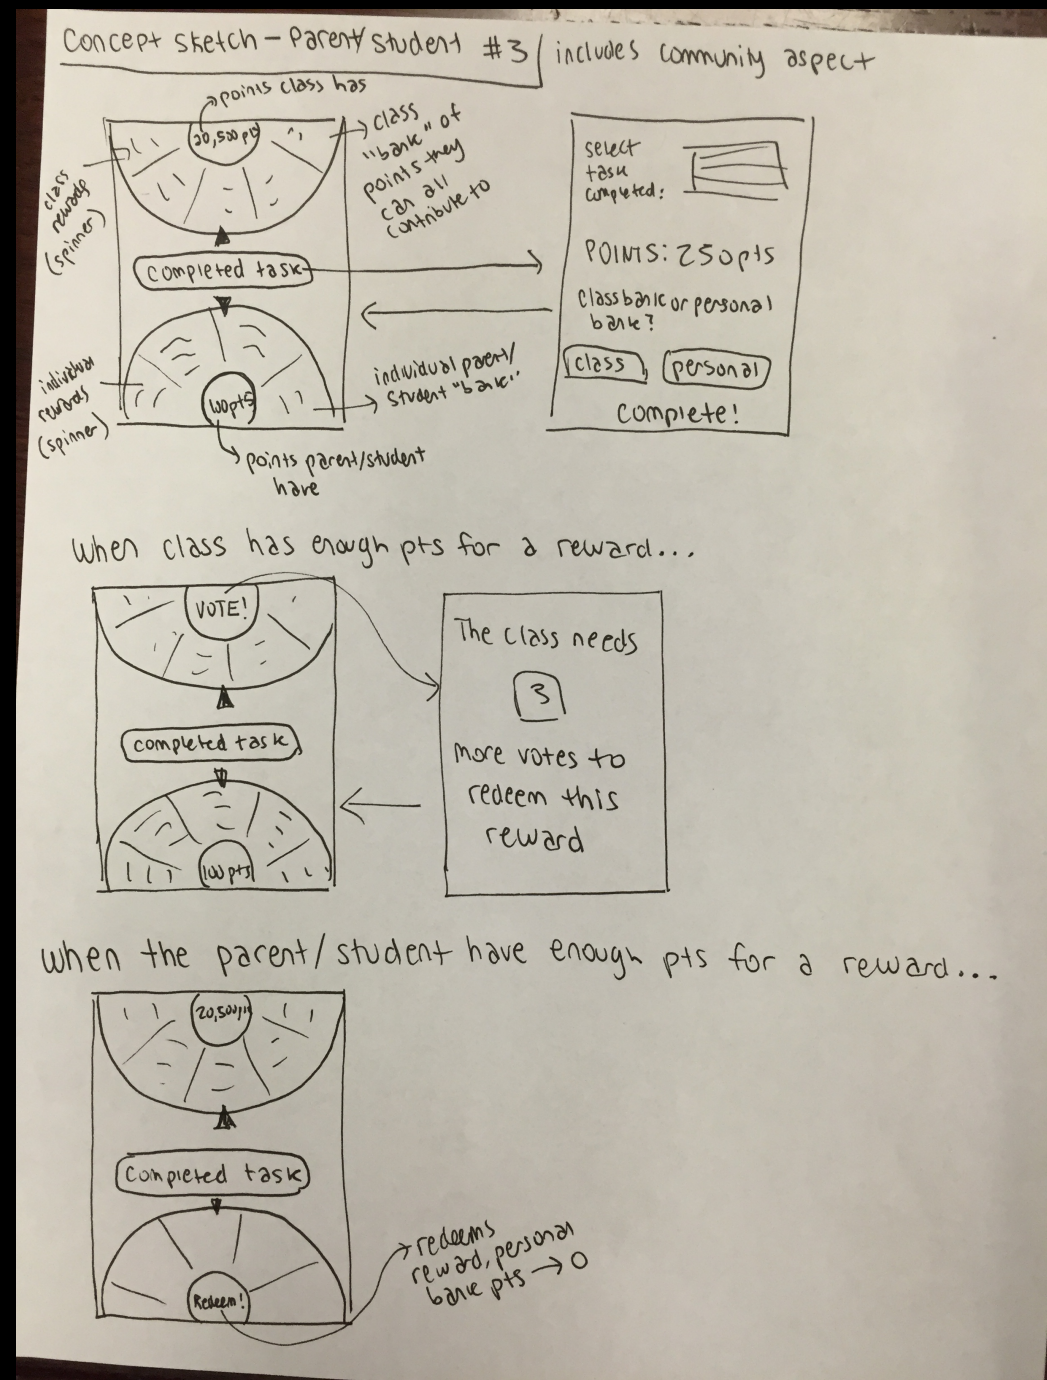 Concept Sketch - Parent/Student #3
includes community aspect
points class has
20,500 pts
class
"bank" of
points they
can all
contribute to
class
rewards
(spinner)
completed task
individual
rewards
(spinner)
100pts
individual parent/
student "bank"
points parent/student
have
select
task
completed:
POINTS: 250pts
Class bank or personal
bank?
class
personal
Complete!
when class has enough pts for a reward...
VOTE!
completed task
100pts
The class needs
3
more votes to
redeem this
reward
when the parent/student have enough pts for a reward...
20,500
Completed task
Redeem!
redeems
reward, personal
bank pts → 0